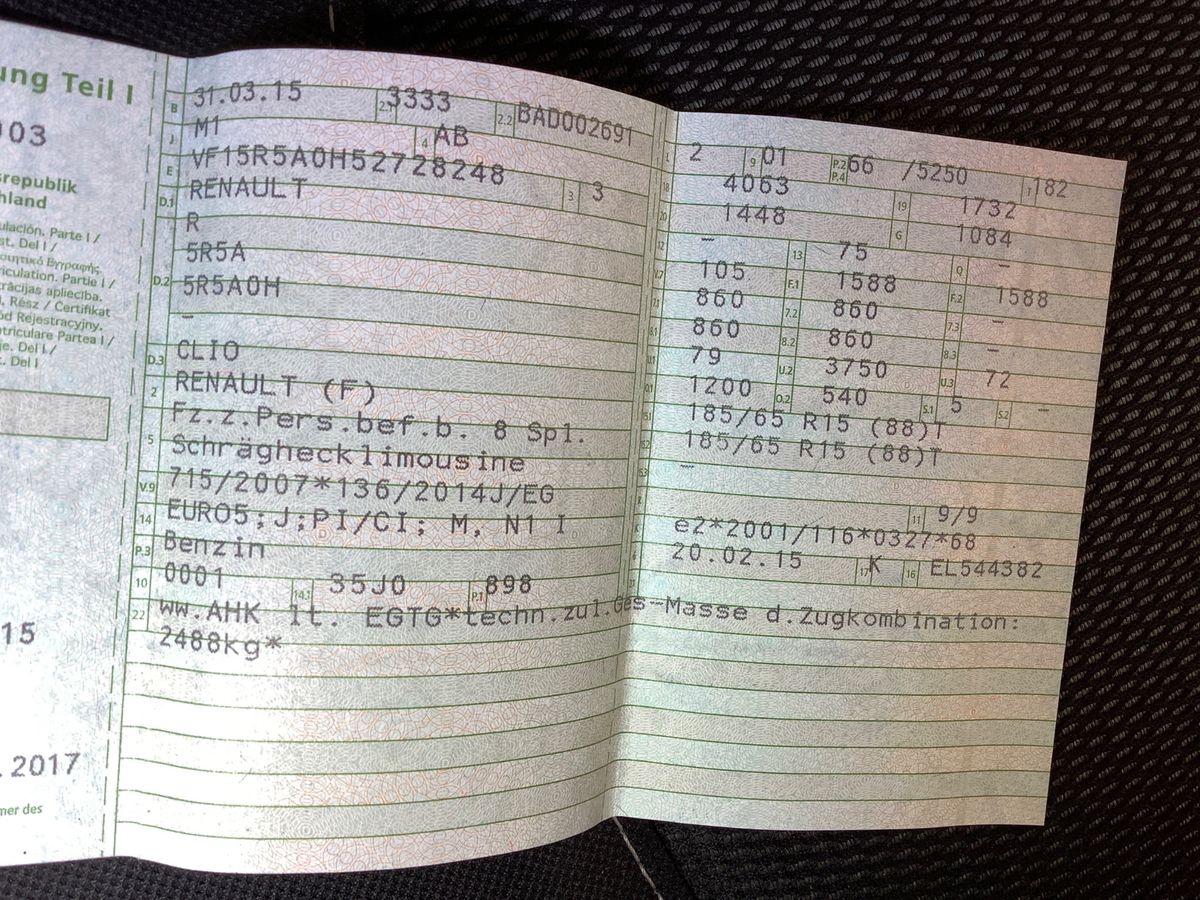 ung Teil I
003
republik
hland
ulación. Parte I /
st. Del I /
iculation. Partie I /
trācijas apliecība.
I. Rész / Certifikat
ód Rejestracyjny.
triculare Partea I /
je. Del I /
t. Del I
15
. 2017
mer des
B 31.03.15 2.1 3333 2.2 BAD002691
J M1 4 AB
E VF15R5A0H52728248 3 3
D.1 RENAULT
R
5R5A
D.2 5R5A0H
–
D.3 CLIO
2 RENAULT (F)
Fz.z.Pers.bef.b. 8 Spl.
5 Schräghecklimousine
V.9 715/2007*136/2014J/EG
14 EURO5;J;PI/CI; M, N1 I
P.3 Benzin
10 0001 14.1 35J0 P.1 898
22 WW.AHK lt. EGTG*techn.zul.Ges-Masse d.Zugkombination:
2488kg*
2 9 01 P.2 P.4 66 /5250 T 182
18 4063 19 1732
20 1448 G 1084
12 – 13 75 Q –
V.7 105 F.1 1588 F.2 1588
7.1 860 7.2 860 7.3 –
8.1 860 8.2 860 8.3 –
U.1 79 U.2 3750 U.3 72
O.1 1200 O.2 540 S.1 5 S.2 –
15.1 185/65 R15 (88)T
15.2 185/65 R15 (88)T
15.3 –
11 9/9
K e2*2001/116*0327*68
6 20.02.15 17 K 16 EL544382